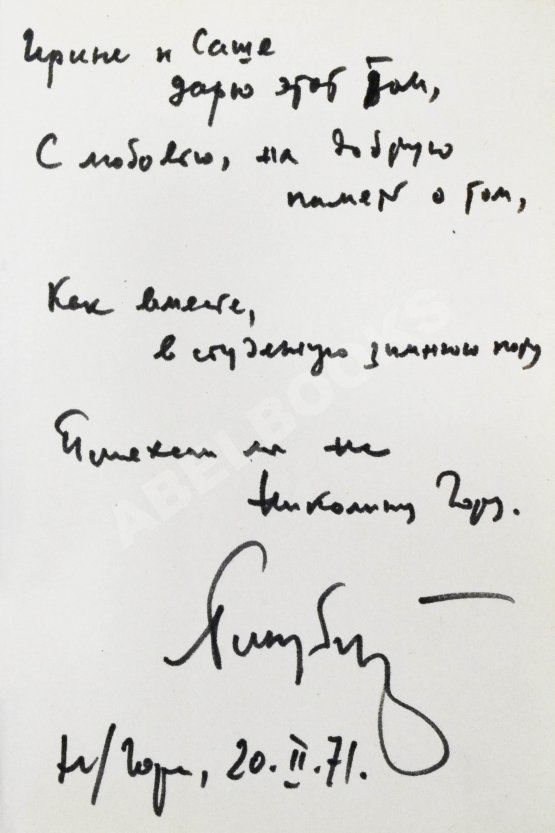 Ирине и Саше
дарю этот том,
С любовью, на добрую
память о том,
Как вместе,
в студеную зимнюю пору
Приехали мы на
Николину Гору.
Н/Гора, 20.II.71.
ABELBOOKS